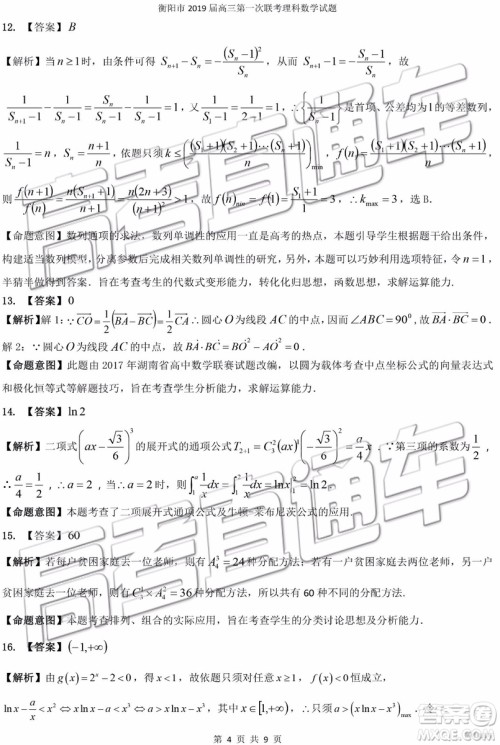 衡阳市 2019 届高三第一次联考理科数学试题
12. 【答案】B
【解析】当 n≥1 时，由条件可得 S_{n+1} - S_n = (S_n - 1)^2 / S_n，从而 S_{n+1} - 1 = (S_n - 1) / S_n，故
1/(S_{n+1} - 1) - 1/(S_n - 1) = S_n/(S_n - 1) - 1/(S_n - 1) = 1，又 1/(S_1 - 1) = 1/(2 - 1) = 1，∴ {1/(S_n - 1)} 是首项、公差均为 1 的等差数列，
1/(S_n - 1) = n，S_n = (n+1)/n，依题只须 k ≤ ((S_1+1)(S_2+1)⋯(S_n+1)/n)_min，f(n) = (S_1+1)(S_2+1)⋯(S_n+1)/n，
则 f(n+1)/f(n) = n(S_{n+1}+1)/(n+1) = n(2n+3)/(n+1)^2 > 1，故 f(n)_min = f(1) = (S_1+1)/1 = 3，∴ k_max = 3，选 B.
【命题意图】数列通项的求法，数列单调性的应用一直是高考的热点，本题引导学生根据给出条件，
构建适当数列模型，分离参数后应用数列单调性，求解数学问题．本题可以巧妙利用选项特点，令 n=1，
半猜半做得到答案．旨在考查考生的代数式变形能力，转化化归思想，函数思想，求解运算能力．
13. 【答案】0
【解析】解 1：∵ CO = 1/2(BA - BC) = 1/2 CA ∴ 圆心 O 为线段 AC 的中点，因而 ∠ABC = 90^0，故 BA·BC = 0．
解 2：∵ 圆心 O 为线段 AC 的中点，故 BA·BC = BO^2 - AO^2 = 0．
【命题意图】此题由 2017 年湖南省高中数学联赛试题改编，以圆为载体考查中点坐标公式的向量表达式
和极化恒等式等解题技巧，旨在考查学生分析能力，求解能力．
14. 【答案】ln 2
【解析】二项式 (ax - √3/6)^3 的展开式的通项公式 T_{2+1} = C_3^2 (ax)^1 (-√3/6)^2 = a/4 x，∵ 第三项的系数为 1/2，
∴ a/4 = 1/2，∴ a = 2，当 a = 2 时，则 ∫_1^a 1/x dx = ∫_1^2 1/x dx = ln x|_1^2 = ln 2．
【命题意图】本题考查了二项展开式通项公式及牛顿 莱布尼茨公式的应用．
15. 【答案】60
【解析】若每户贫困家庭去一位老师，则有 A_4^3 = 24 种分配方法；若有一户贫困家庭去两位老师，另一户贫困
家庭去一位老师，则有 C_3^2 × A_4^2 = 36 种分配方法，所以共有 60 种不同分配方法．
【命题意图】本题考查排列、组合，旨在考查学生分析能力，求解能力．
16. 【答案】(-1,+∞)
【解析】由 g(x) = 2^x - 2 < 0，得 x < 1，故依题只须对任意 x ≥ 1，f(x) < 0 恒成立，
ln x - a/x < x^2 ⇔ x ln x - a < x^3 ⇔ a > x ln x - x^3，其中 x∈[1,+∞)．∴ 只须 a > (x ln x - x^3)_max．
第 4 页 共 9 页
高考直通车
高考直通车
高考直通车